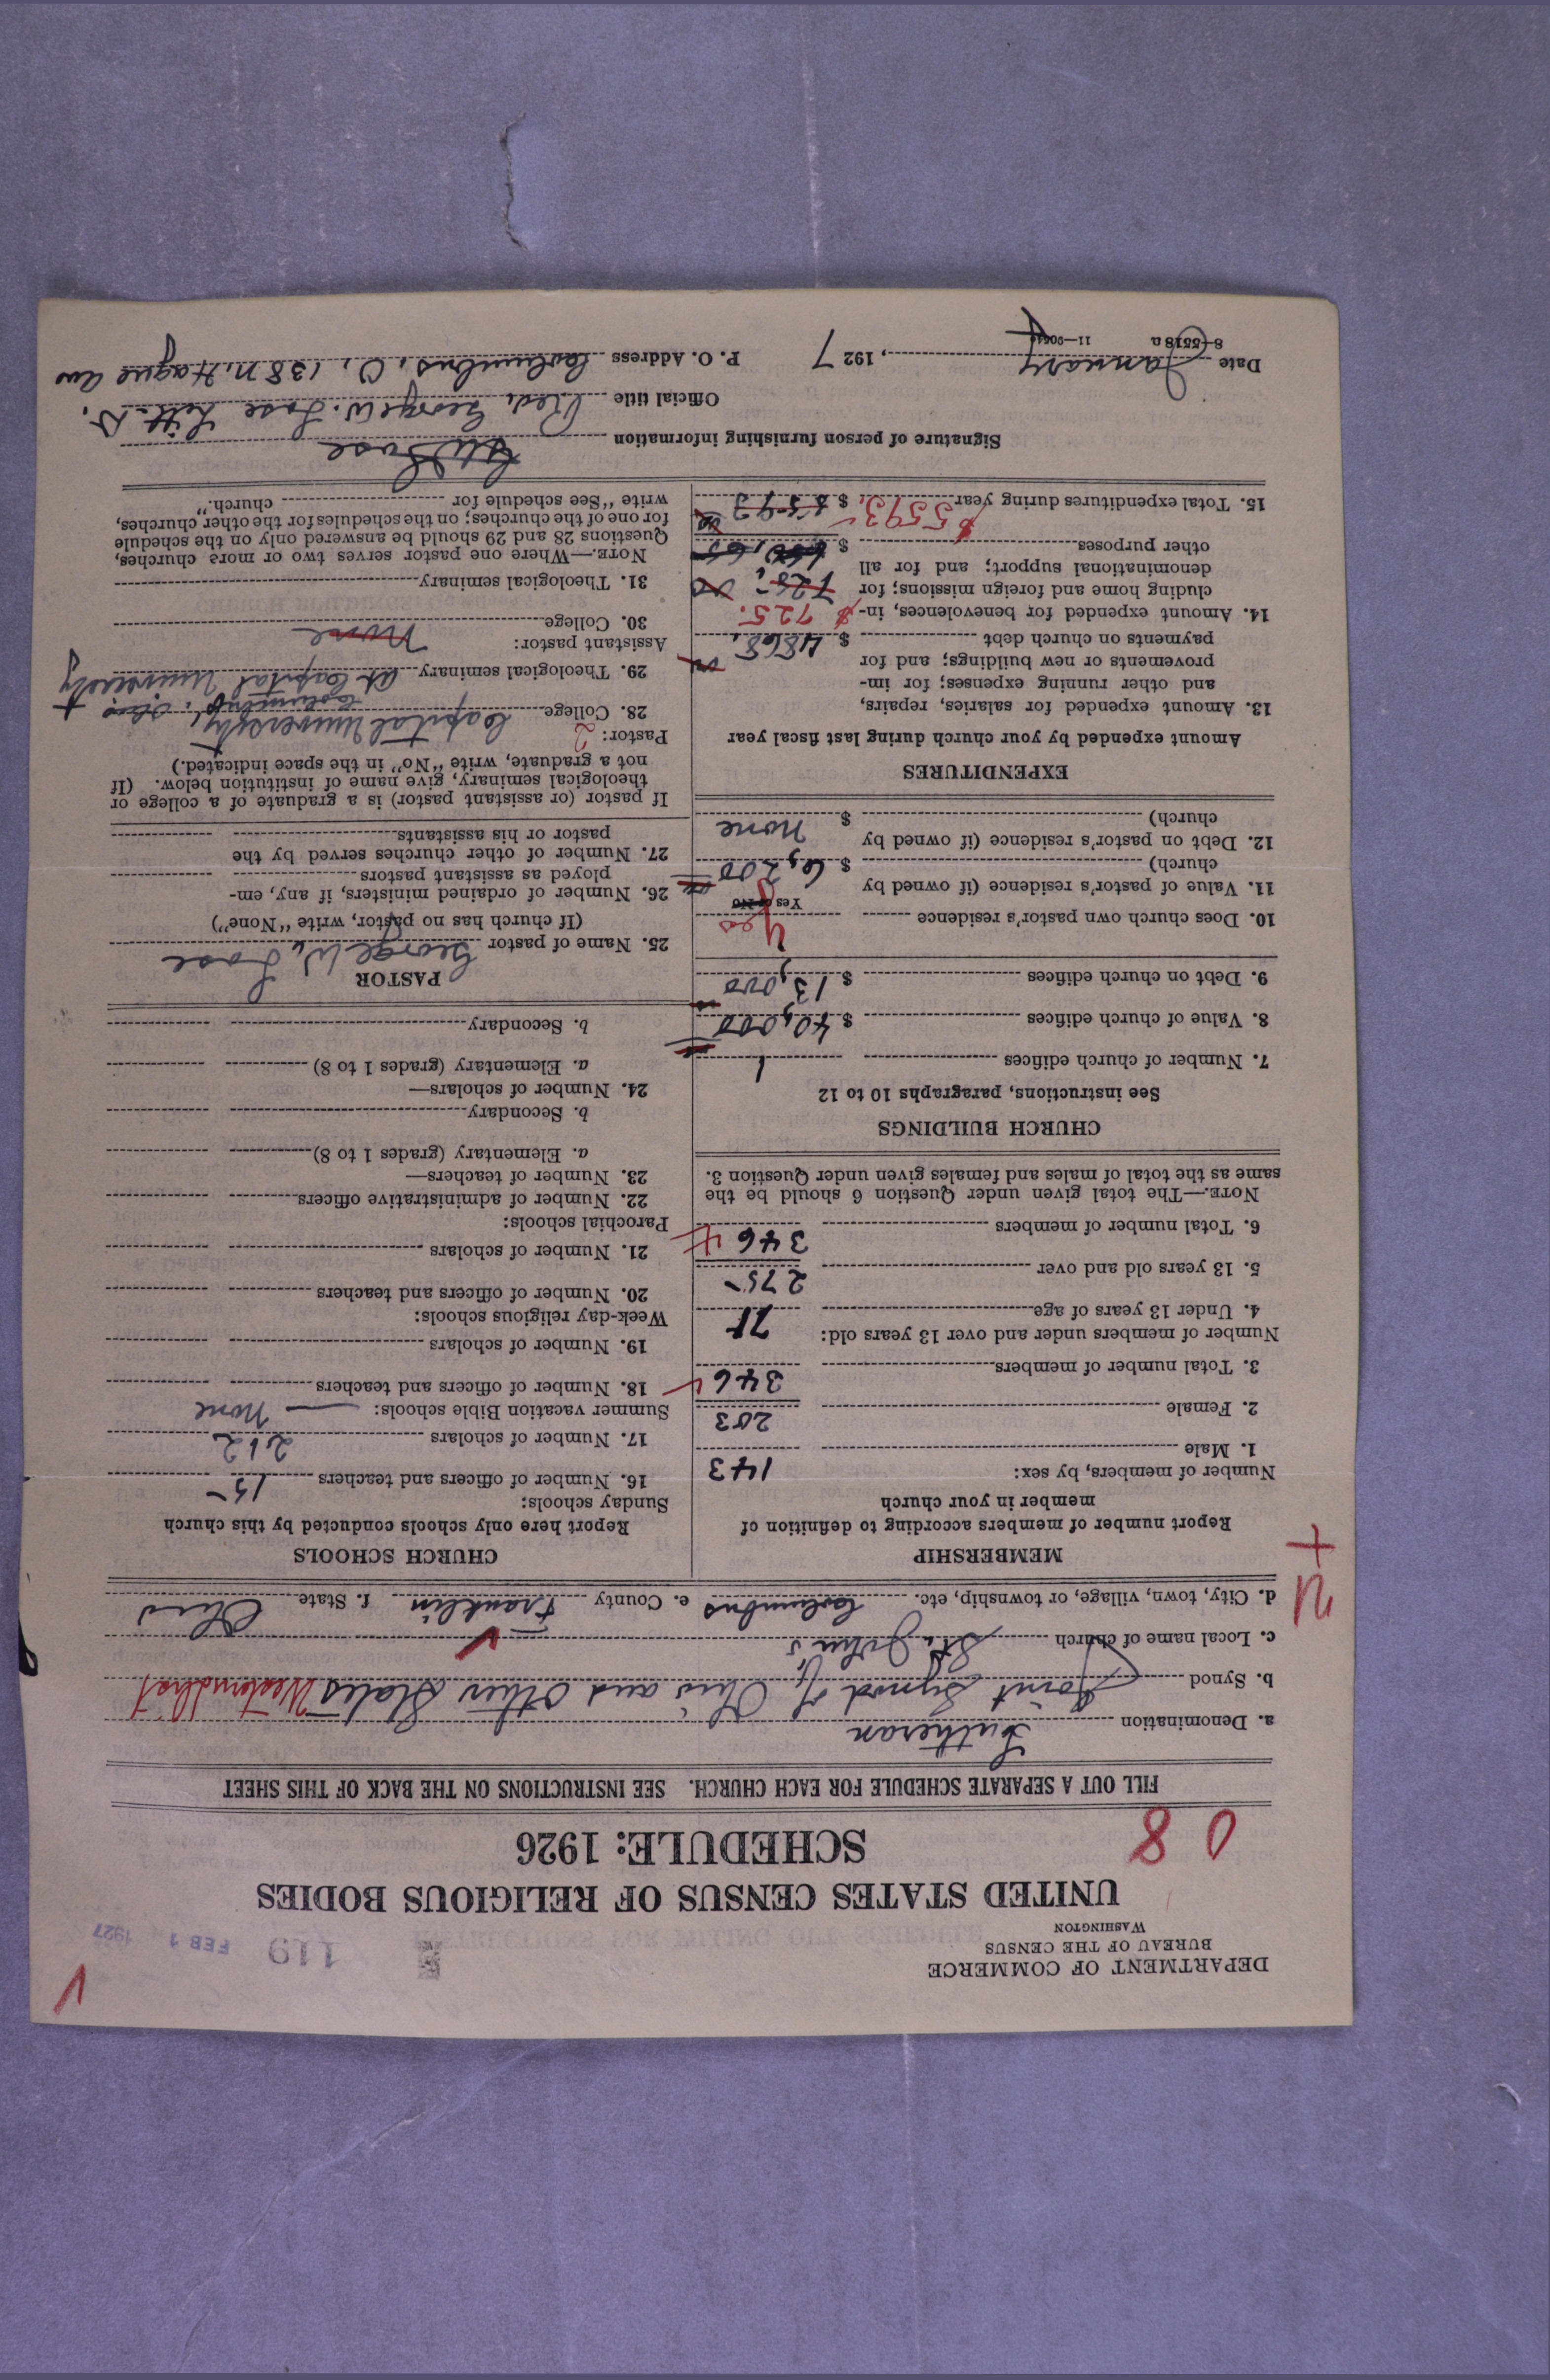 DEPARTMENT OF COMMERCE
BUREAU OF THE CENSUS
WASHINGTON
119 FEB 1 1927
UNITED STATES CENSUS OF RELIGIOUS BODIES
SCHEDULE: 1926
08
FILL OUT A SEPARATE SCHEDULE FOR EACH CHURCH. SEE INSTRUCTIONS ON THE BACK OF THIS SHEET
a. Denomination Lutheran
b. Synod Joint Synod of Ohio and Other States Western Dist
c. Local name of church St. John's
d. City, town, village, or township, etc. Columbus e. County Franklin f. State Ohio
MEMBERSHIP
Report number of members according to definition of
member in your church
Number of members, by sex:
1. Male 143
2. Female 203
3. Total number of members 346
Number of members under and over 13 years old:
4. Under 13 years of age 71
5. 13 years old and over 275
6. Total number of members 346
NOTE.—The total given under Question 6 should be the
same as the total of males and females given under Question 3.
CHURCH BUILDINGS
See instructions, paragraphs 10 to 12
7. Number of church edifices 1
8. Value of church edifices $ 40,000
9. Debt on church edifices $ 13,000
10. Does church own pastor's residence Yes
Yes or No
11. Value of pastor's residence (if owned by
church) $ 6,200
12. Debt on pastor's residence (if owned by
church) $ none
EXPENDITURES
Amount expended by your church during last fiscal year
13. Amount expended for salaries, repairs,
and other running expenses; for im-
provements or new buildings; and for
payments on church debt $ 4868.
14. Amount expended for benevolences, in- $ 725.
cluding home and foreign missions; for 725.
denominational support; and for all
other purposes $
15. Total expenditures during year $5593. $ 5593
CHURCH SCHOOLS
Report here only schools conducted by this church
Sunday schools:
16. Number of officers and teachers 15
17. Number of scholars 212
Summer vacation Bible schools: — None
18. Number of officers and teachers
19. Number of scholars
Week-day religious schools:
20. Number of officers and teachers
21. Number of scholars
Parochial schools:
22. Number of administrative officers
23. Number of teachers—
a. Elementary (grades 1 to 8)
b. Secondary
24. Number of scholars—
a. Elementary (grades 1 to 8)
b. Secondary
PASTOR
25. Name of pastor George W. Lose
(If church has no pastor, write "None")
26. Number of ordained ministers, if any, em-
ployed as assistant pastors
27. Number of other churches served by the
pastor or his assistants
If pastor (or assistant pastor) is a graduate of a college or
theological seminary, give name of institution below. (If
not a graduate, write "No" in the space indicated.)
Pastor: 2
28. College Capital University,
Columbus, Ohio +
29. Theological seminary at Capital University
Assistant pastor: None
30. College
31. Theological seminary
NOTE.—Where one pastor serves two or more churches,
Questions 28 and 29 should be answered only on the schedule
for one of the churches; on the schedules for the other churches,
write "See schedule for church."
Signature of person furnishing information GW Lose
Official title Rev. George W. Lose Litt. D.
Date January, 1927 P. O. Address Columbus, O., 138 N. Hague Ave
8-5518a